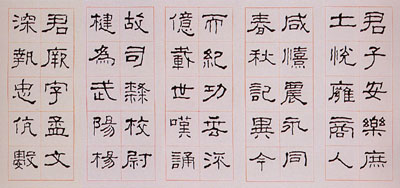 君子安樂庶
士悅雍商人
咸憘農永同
春秋記異今
而紀功垂流
億載世嘆誦
故司隸校尉
楗為武陽楊
君厥字孟文
深執忠伉數